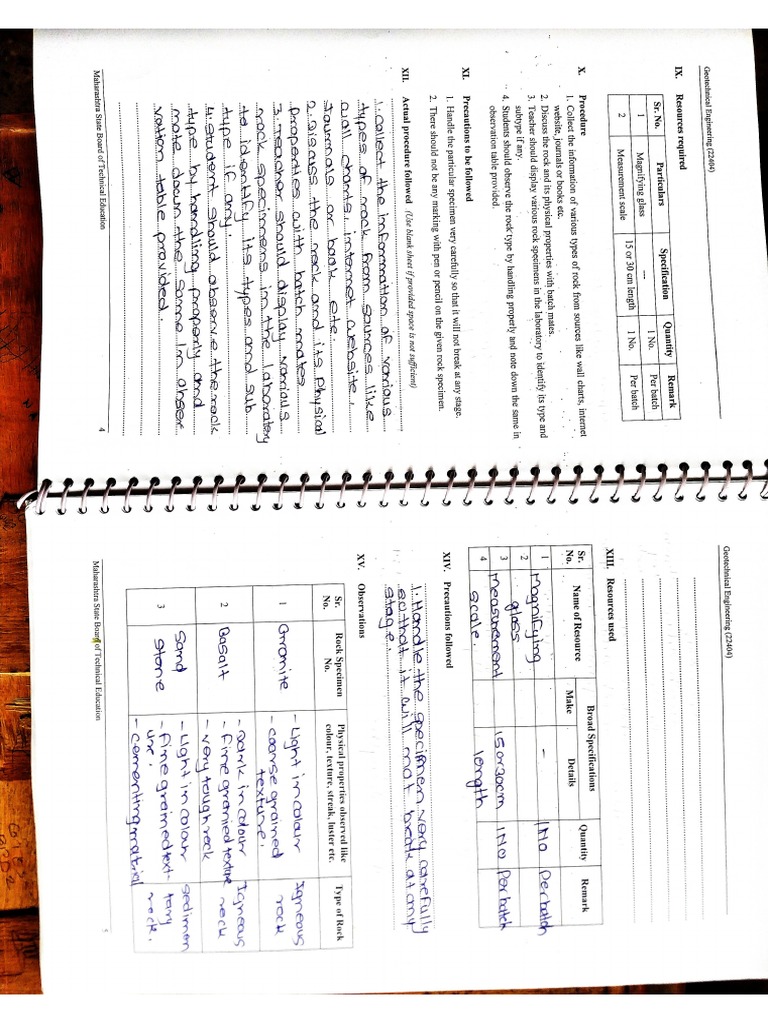 Geotechnical Engineering (22404)
IX. Resources required
Sr. No. Particulars Specification Quantity Remark
1 Magnifying glass --- 1 No. Per batch
2 Measurement scale 15 or 30 cm length 1 No. Per batch
X. Procedure
1. Collect the information of various types of rock from sources like wall charts, internet
website, journals or books etc.
2. Discuss the rock and its physical properties with batch mates.
3. Teacher should display various rock specimens in the laboratory to identify its type and
subtype if any.
4. Students should observe the rock type by handling properly and note down the same in
observation table provided.
XI. Precautions to be followed
1. Handle the particular specimen very carefully so that it will not break at any stage.
2. There should not be any marking with pen or pencil on the given rock specimen.
XII. Actual procedure followed (Use blank sheet if provided space is not sufficient)
1. collect the information of various
types of rock from sources like
wall charts, internet website,
Journals or book etc.
2. Discuss the rock and its Physical
properties with batch mates
3. Teacher should display various
rock specimens in the laboratory
to identify its types and sub
type if any.
4. Student should observe the rock
type by handling properly and
note down the same in obser
vation table provided.
Maharashtra State Board of Technical Education 4
Geotechnical Engineering (22404)
XIII. Resources used
Sr. No. Name of Resource Broad Specifications Quantity Remark
Make Details
1 Magnifying - 1 No Per batch
2 glass
3 Measurement 15 or 30cm 1 No Per batch
4 scale. length
XIV. Precautions followed
1. Handle the specimen very carefully
so that it will not break at any
stage.
XV. Observations
Sr. No. Rock Specimen No. Physical properties observed like colour, texture, streak, luster etc. Type of Rock
1 Granite - Light in colour Igneous
- coarse grained rock
texture.
2 Basalt - dark in colour Igneous
- fine granied texture rock
- very tough rock
3 Sand - Light in colour sedimen
Stone - fine grained text- tary
ure. rock.
- cementing matrial
Maharashtra State Board of Technical Education 5